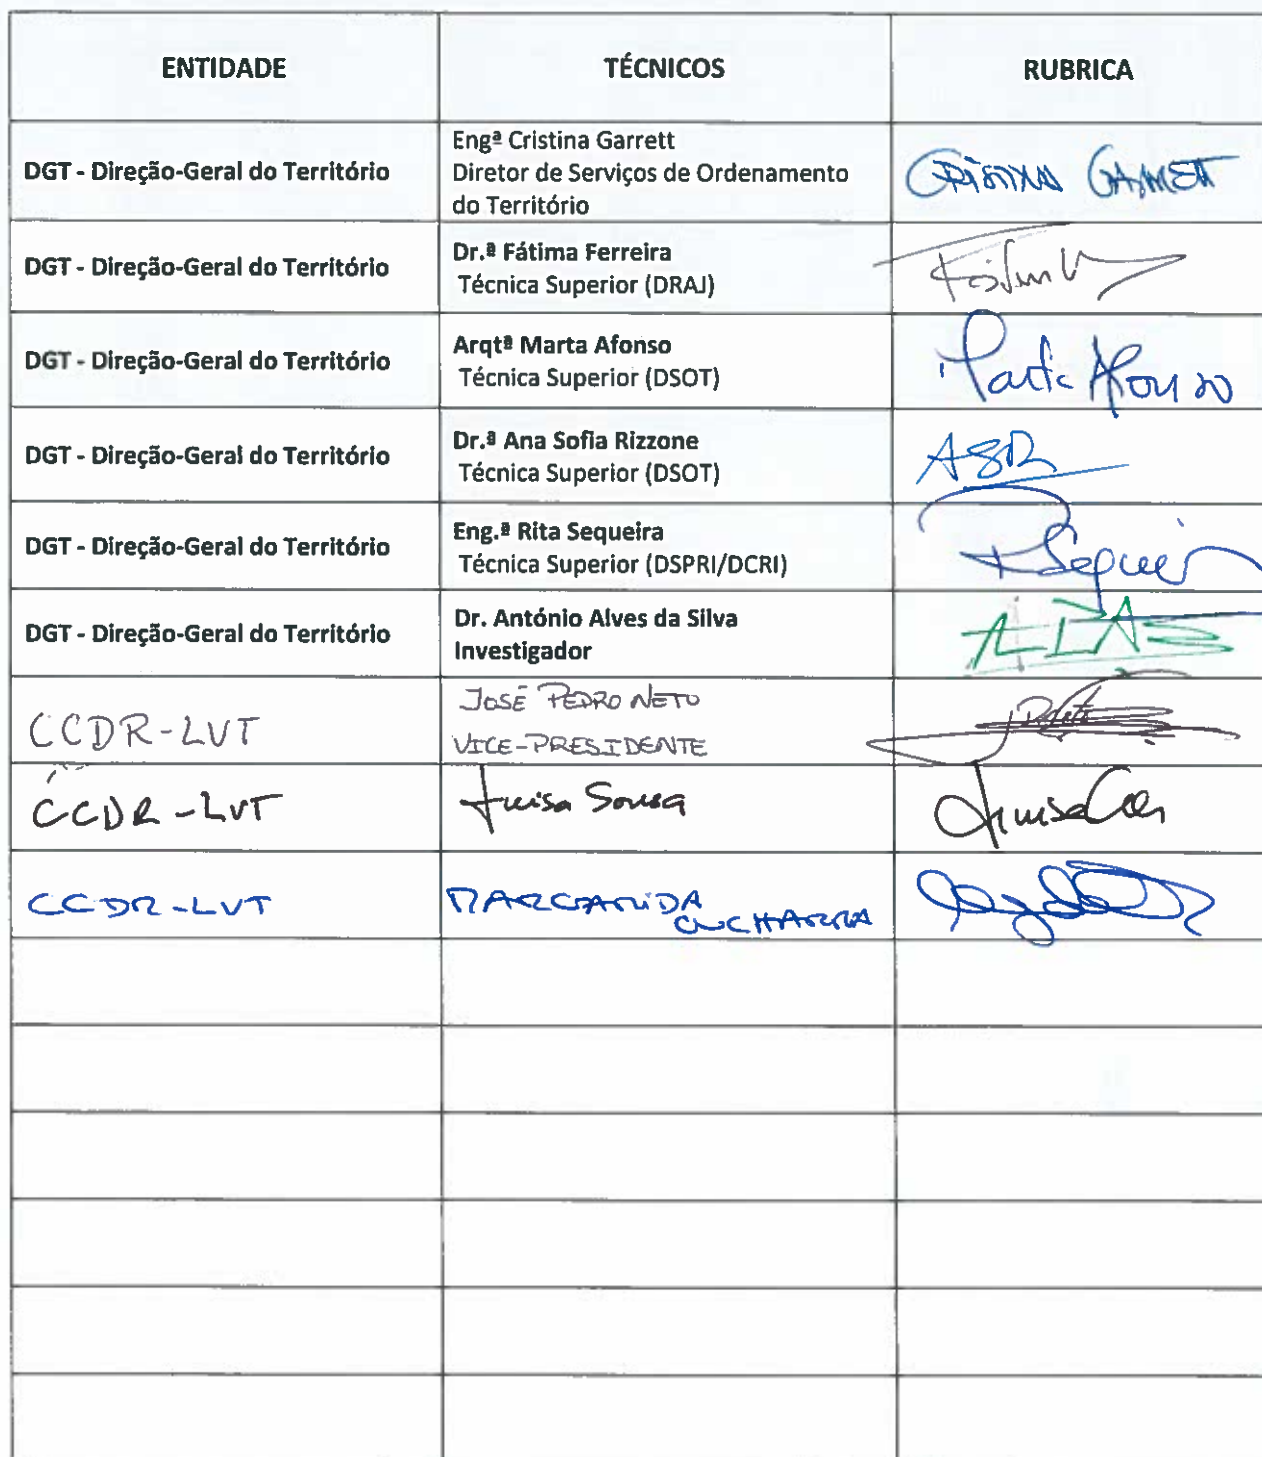 ENTIDADE TÉCNICOS RUBRICA
DGT - Direção-Geral do Território
Engª Cristina Garrett
Diretor de Serviços de Ordenamento
do Território
CRISTINA GARRETT
DGT - Direção-Geral do Território
Dr.ª Fátima Ferreira
Técnica Superior (DRAJ)
DGT - Direção-Geral do Território
Arqtª Marta Afonso
Técnica Superior (DSOT)
Marta Afonso
DGT - Direção-Geral do Território
Dr.ª Ana Sofia Rizzone
Técnica Superior (DSOT)
ASR
DGT - Direção-Geral do Território
Eng.ª Rita Sequeira
Técnica Superior (DSPRI/DCRI)
DGT - Direção-Geral do Território
Dr. António Alves da Silva
Investigador
CCDR-LVT
JOSÉ PEDRO NETO
VICE-PRESIDENTE
CCDR-LVT
Luisa Sousa
CCDR-LVT
MARGARIDA